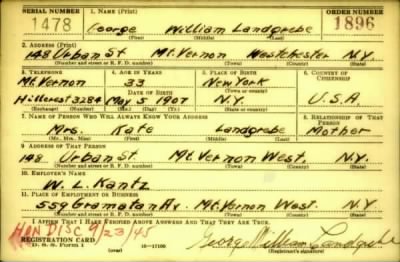 SERIAL NUMBER 1. NAME (Print) ORDER NUMBER
1478 George William Landgrebe 1896
(First) (Middle) (Last)
2. ADDRESS (Print)
148 Urban St Mt. Vernon Westchester N.Y.
(Number and street or R. F. D. number) (Town) (County) (State)
3. TELEPHONE 4. AGE IN YEARS 5. PLACE OF BIRTH 6. COUNTRY OF CITIZENSHIP
Mt. Vernon 33 New York
(Town or county)
Hillcrest 3284 May 5 1907 N.Y. U.S.A.
(Exchange) (No.) (Mo.) (Day) (Yr.) (State or country)
7. NAME OF PERSON WHO WILL ALWAYS KNOW YOUR ADDRESS 8. RELATIONSHIP OF THAT PERSON
Mrs. Kate Landgrebe Mother
(Mr., Mrs., Miss) (First) (Middle) (Last)
9. ADDRESS OF THAT PERSON
148 Urban St. Mt. Vernon West. N.Y.
(Number and street or R. F. D. number) (Town) (County) (State)
10. EMPLOYER'S NAME
W. L. Kantz
11. PLACE OF EMPLOYMENT OR BUSINESS
559 Gramatan Av. Mt. Vernon West. N.Y.
(Number and street or R. F. D. number) (Town) (County) (State)
I AFFIRM THAT I HAVE VERIFIED ABOVE ANSWERS AND THAT THEY ARE TRUE.
HON DISC 9/23/45
REGISTRATION CARD
D. S. S. Form 1 16-17105 George William Landgrebe
(Registrant's signature)